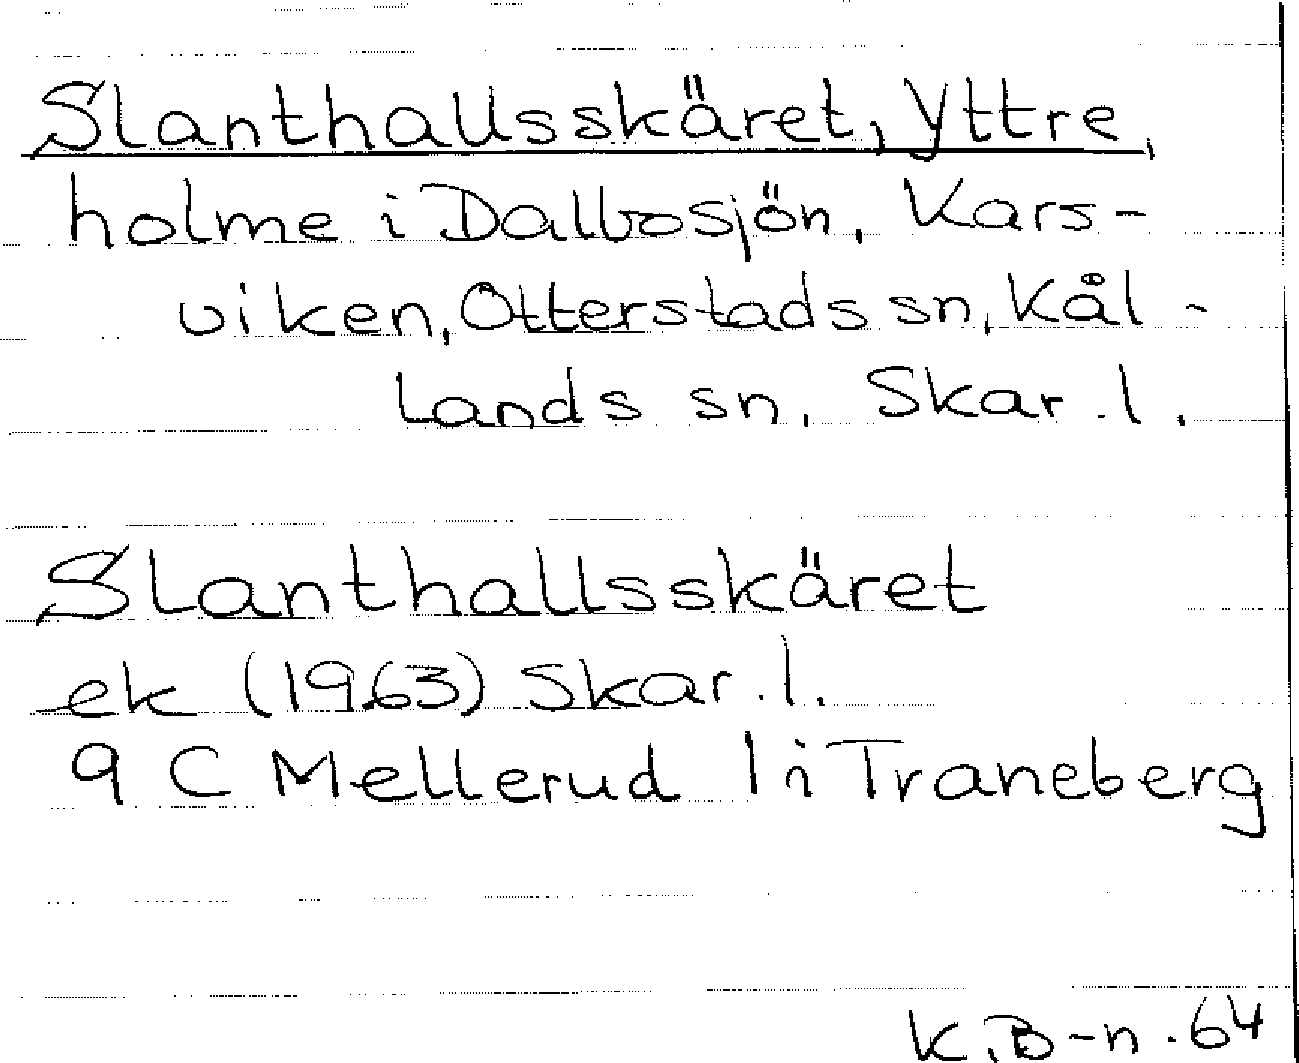 Slanthallsskäret, Yttre,
holme i Dalbosjön, Kars-
viken, Otterstads sn, Kål-
lands sn, Skar. l.
Slanthallsskäret
ek (1963) Skar. l.
9 C Mellerud 1 i Traneberg
K. B-n. 64